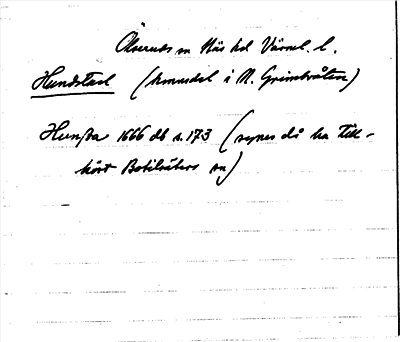 Ölseruds sn Näs hd Värml. l.
Hundstad (hemmansdel i N. Grimbråten)
Hunsta 1666 db s. 173 (synes då ha till-
hört Botilsäters sn)